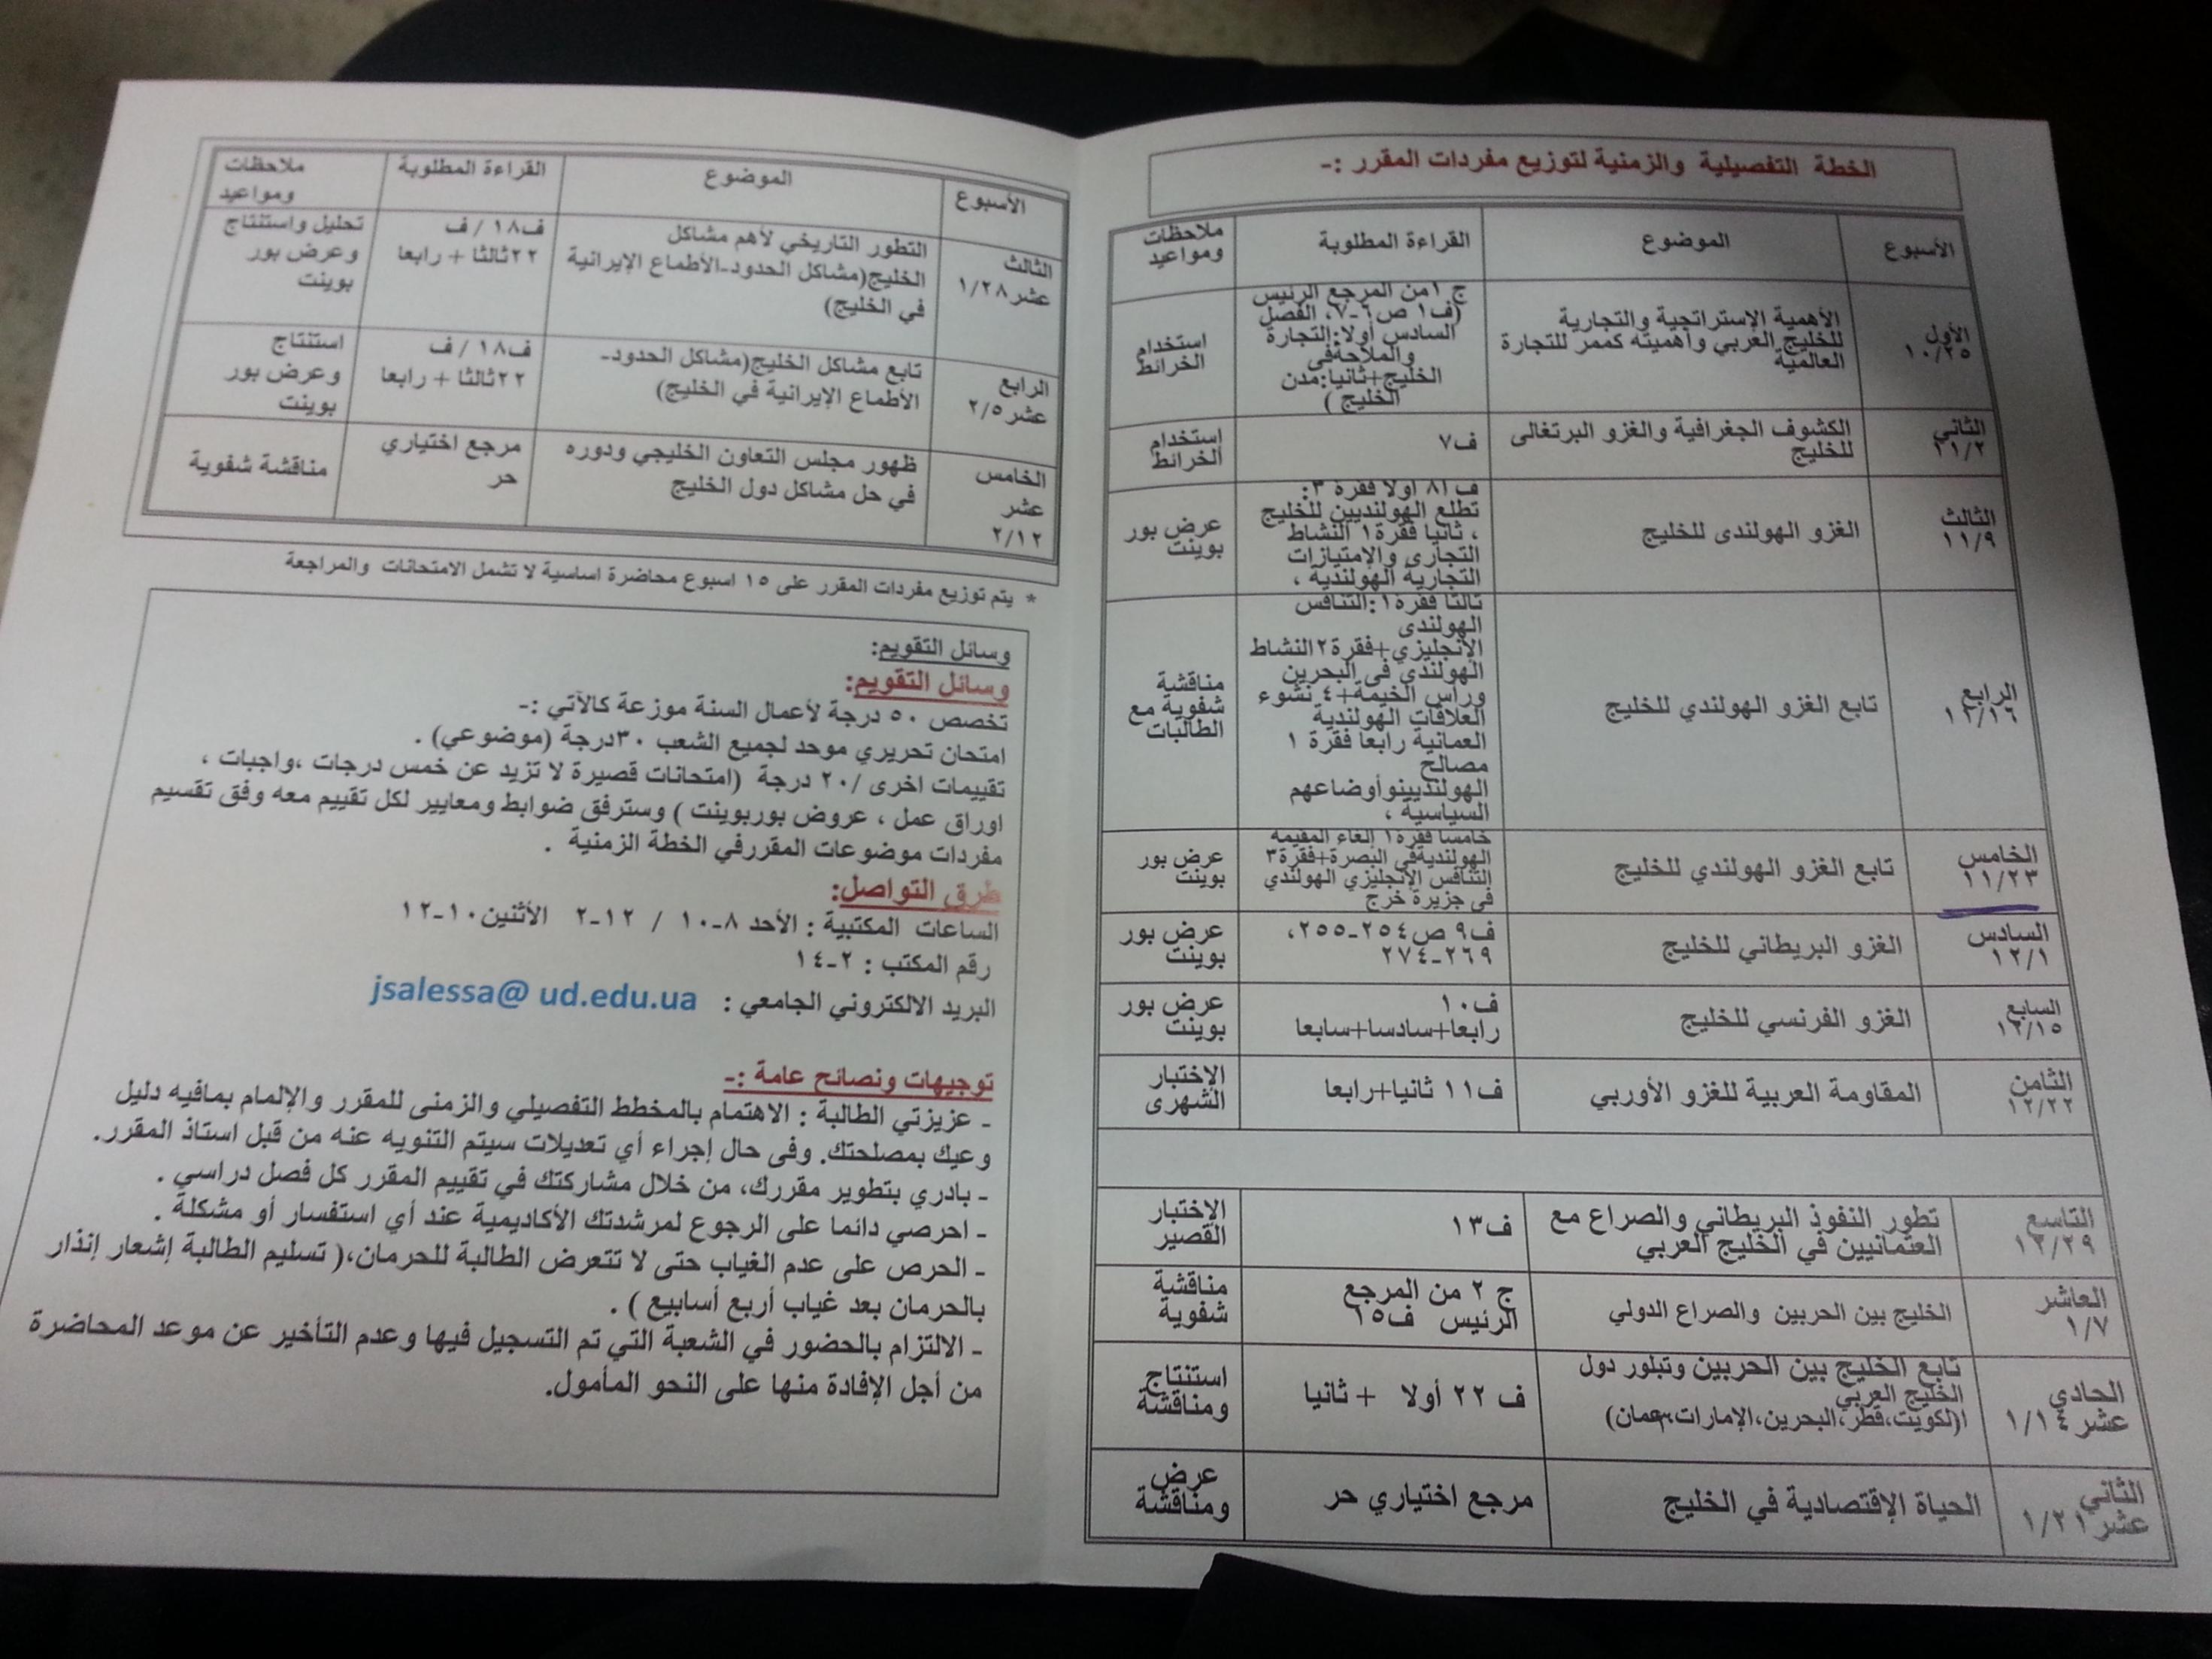 الخطة التفصيلية والزمنية لتوزيع مفردات المقرر :-
الأسبوع الموضوع القراءة المطلوبة ملاحظات ومواعيد
الأول ١٠/٢٥
الأهمية الإستراتجية والتجارية
للخليج العربي واهميته كممر للتجارة
العالمية
ج ١من المرجع الرئيس
(ف١ ص٦-٧، الفصل
السادس أولا:التجارة
والملاحةفى
الخليج+ثانيا:مدن
الخليج )
استخدام
الخرائط
الثاني
١١/٢
الكشوف الجغرافية والغزو البرتغالى
للخليج
ف٧
استخدام
الخرائط
الثالث
١١/٩
الغزو الهولندى للخليج
أولا فقرة ٣:
تطلع الهولنديين للخليج
، ثانيا فقرة١ النشاط
التجارى والإمتيازات
التجارية الهولندية ،
عرض بور
بوينت
الرابع
تابع الغزو الهولندي للخليج
ثالثا فقرة١:التنافس
الهولندى
الإنجليزي+فقرة٢النشاط
الهولندي فى البحرين
وراس الخيمة+٤ نشوء
العلاقات الهولندية
العمانية رابعا فقرة ١
مصالح
الهولنديينوأوضاعهم
السياسية ،
مناقشة
شفوية مع
الطالبات
الخامس
١١/٢٣
تابع الغزو الهولندي للخليج
خامسا فقرة١ إلغاء المقيمه
الهولنديةفى البصرة+فقرة٣
التنافس الإنجليزي الهولندي
فى جزيرة خرج
عرض بور
بوينت
السادس
١٢/١
الغزو البريطاني للخليج
ف٩ ص٢٥٤-٢٥٥،
٢٦٩-٢٧٤
عرض بور
بوينت
السابع
١٢/١٥
الغزو الفرنسي للخليج
ف١٠
رابعا+سادسا+سابعا
عرض بور
بوينت
الثامن
١٢/٢٢
المقاومة العربية للغزو الأوربي
ف١١ ثانيا+رابعا
الإختبار
الشهرى
التاسع
١٢/٢٩
تطور النفوذ البريطاني والصراع مع
العثمانيين في الخليج العربي
ف١٣
الإختبار
القصير
العاشر
١/٧
الخليج بين الحربين والصراع الدولي
ج ٢ من المرجع
الرئيس ف١٥
مناقشة
شفوية
الحادي
عشر١/١٤
تابع الخليج بين الحربين وتبلور دول
الخليج العربي
(الكويت،قطر،البحرين،الإمارات،عمان)
ف ٢٢ أولا + ثانيا
استنتاج
ومناقشة
الثاني
عشر١/٢١
الحياة الإقتصادية في الخليج
مرجع اختياري حر
عرض
ومناقشة
الأسبوع الموضوع القراءة المطلوبة ملاحظات
ومواعيد
الثالث
عشر١/٢٨
التطور التاريخي لأهم مشاكل
الخليج(مشاكل الحدود-الأطماع الإيرانية
في الخليج)
ف١٨ / ف
٢٢ثالثا + رابعا
تحليل واستنتاج
وعرض بور
بوينت
الرابع
عشر٢/٥
تابع مشاكل الخليج(مشاكل الحدود-
الأطماع الإيرانية في الخليج)
ف١٨ / ف
٢٢ثالثا + رابعا
استنتاج
وعرض بور
بوينت
الخامس
عشر
٢/١٢
ظهور مجلس التعاون الخليجي ودوره
في حل مشاكل دول الخليج
مرجع اختياري
حر
مناقشة شفوية
* يتم توزيع مفردات المقرر على ١٥ اسبوع محاضرة اساسية لا تشمل الامتحانات والمراجعة
وسائل التقويم:
وسائل التقويم:
تخصص ٥٠ درجة لأعمال السنة موزعة كالآتي :-
امتحان تحريري موحد لجميع الشعب ٣٠درجة (موضوعي) .
تقييمات اخرى /٢٠ درجة (امتحانات قصيرة لا تزيد عن خمس درجات ،واجبات ،
اوراق عمل ، عروض بوربوينت ) وسترفق ضوابط ومعايير لكل تقييم معه وفق تقسيم
مفردات موضوعات المقررفي الخطة الزمنية .
طرق التواصل:
الساعات المكتبية : الأحد ٨-١٠ / ١٢-٢ الأثنين١٠-١٢
رقم المكتب : ٢-١٤
البريد الالكتروني الجامعي : jsalessa@ ud.edu.ua
توجيهات ونصائح عامة :-
- عزيزتي الطالبة : الاهتمام بالمخطط التفصيلي والزمنى للمقرر والإلمام بمافيه دليل
وعيك بمصلحتك. وفى حال إجراء أي تعديلات سيتم التنويه عنه من قبل استاذ المقرر.
- بادري بتطوير مقررك، من خلال مشاركتك في تقييم المقرر كل فصل دراسي .
- احرصي دائما على الرجوع لمرشدتك الأكاديمية عند أي استفسار أو مشكلة .
- الحرص على عدم الغياب حتى لا تتعرض الطالبة للحرمان،( تسليم الطالبة إشعار إنذار
بالحرمان بعد غياب أربع أسابيع ) .
- الالتزام بالحضور في الشعبة التي تم التسجيل فيها وعدم التأخير عن موعد المحاضرة
من أجل الإفادة منها على النحو المأمول.